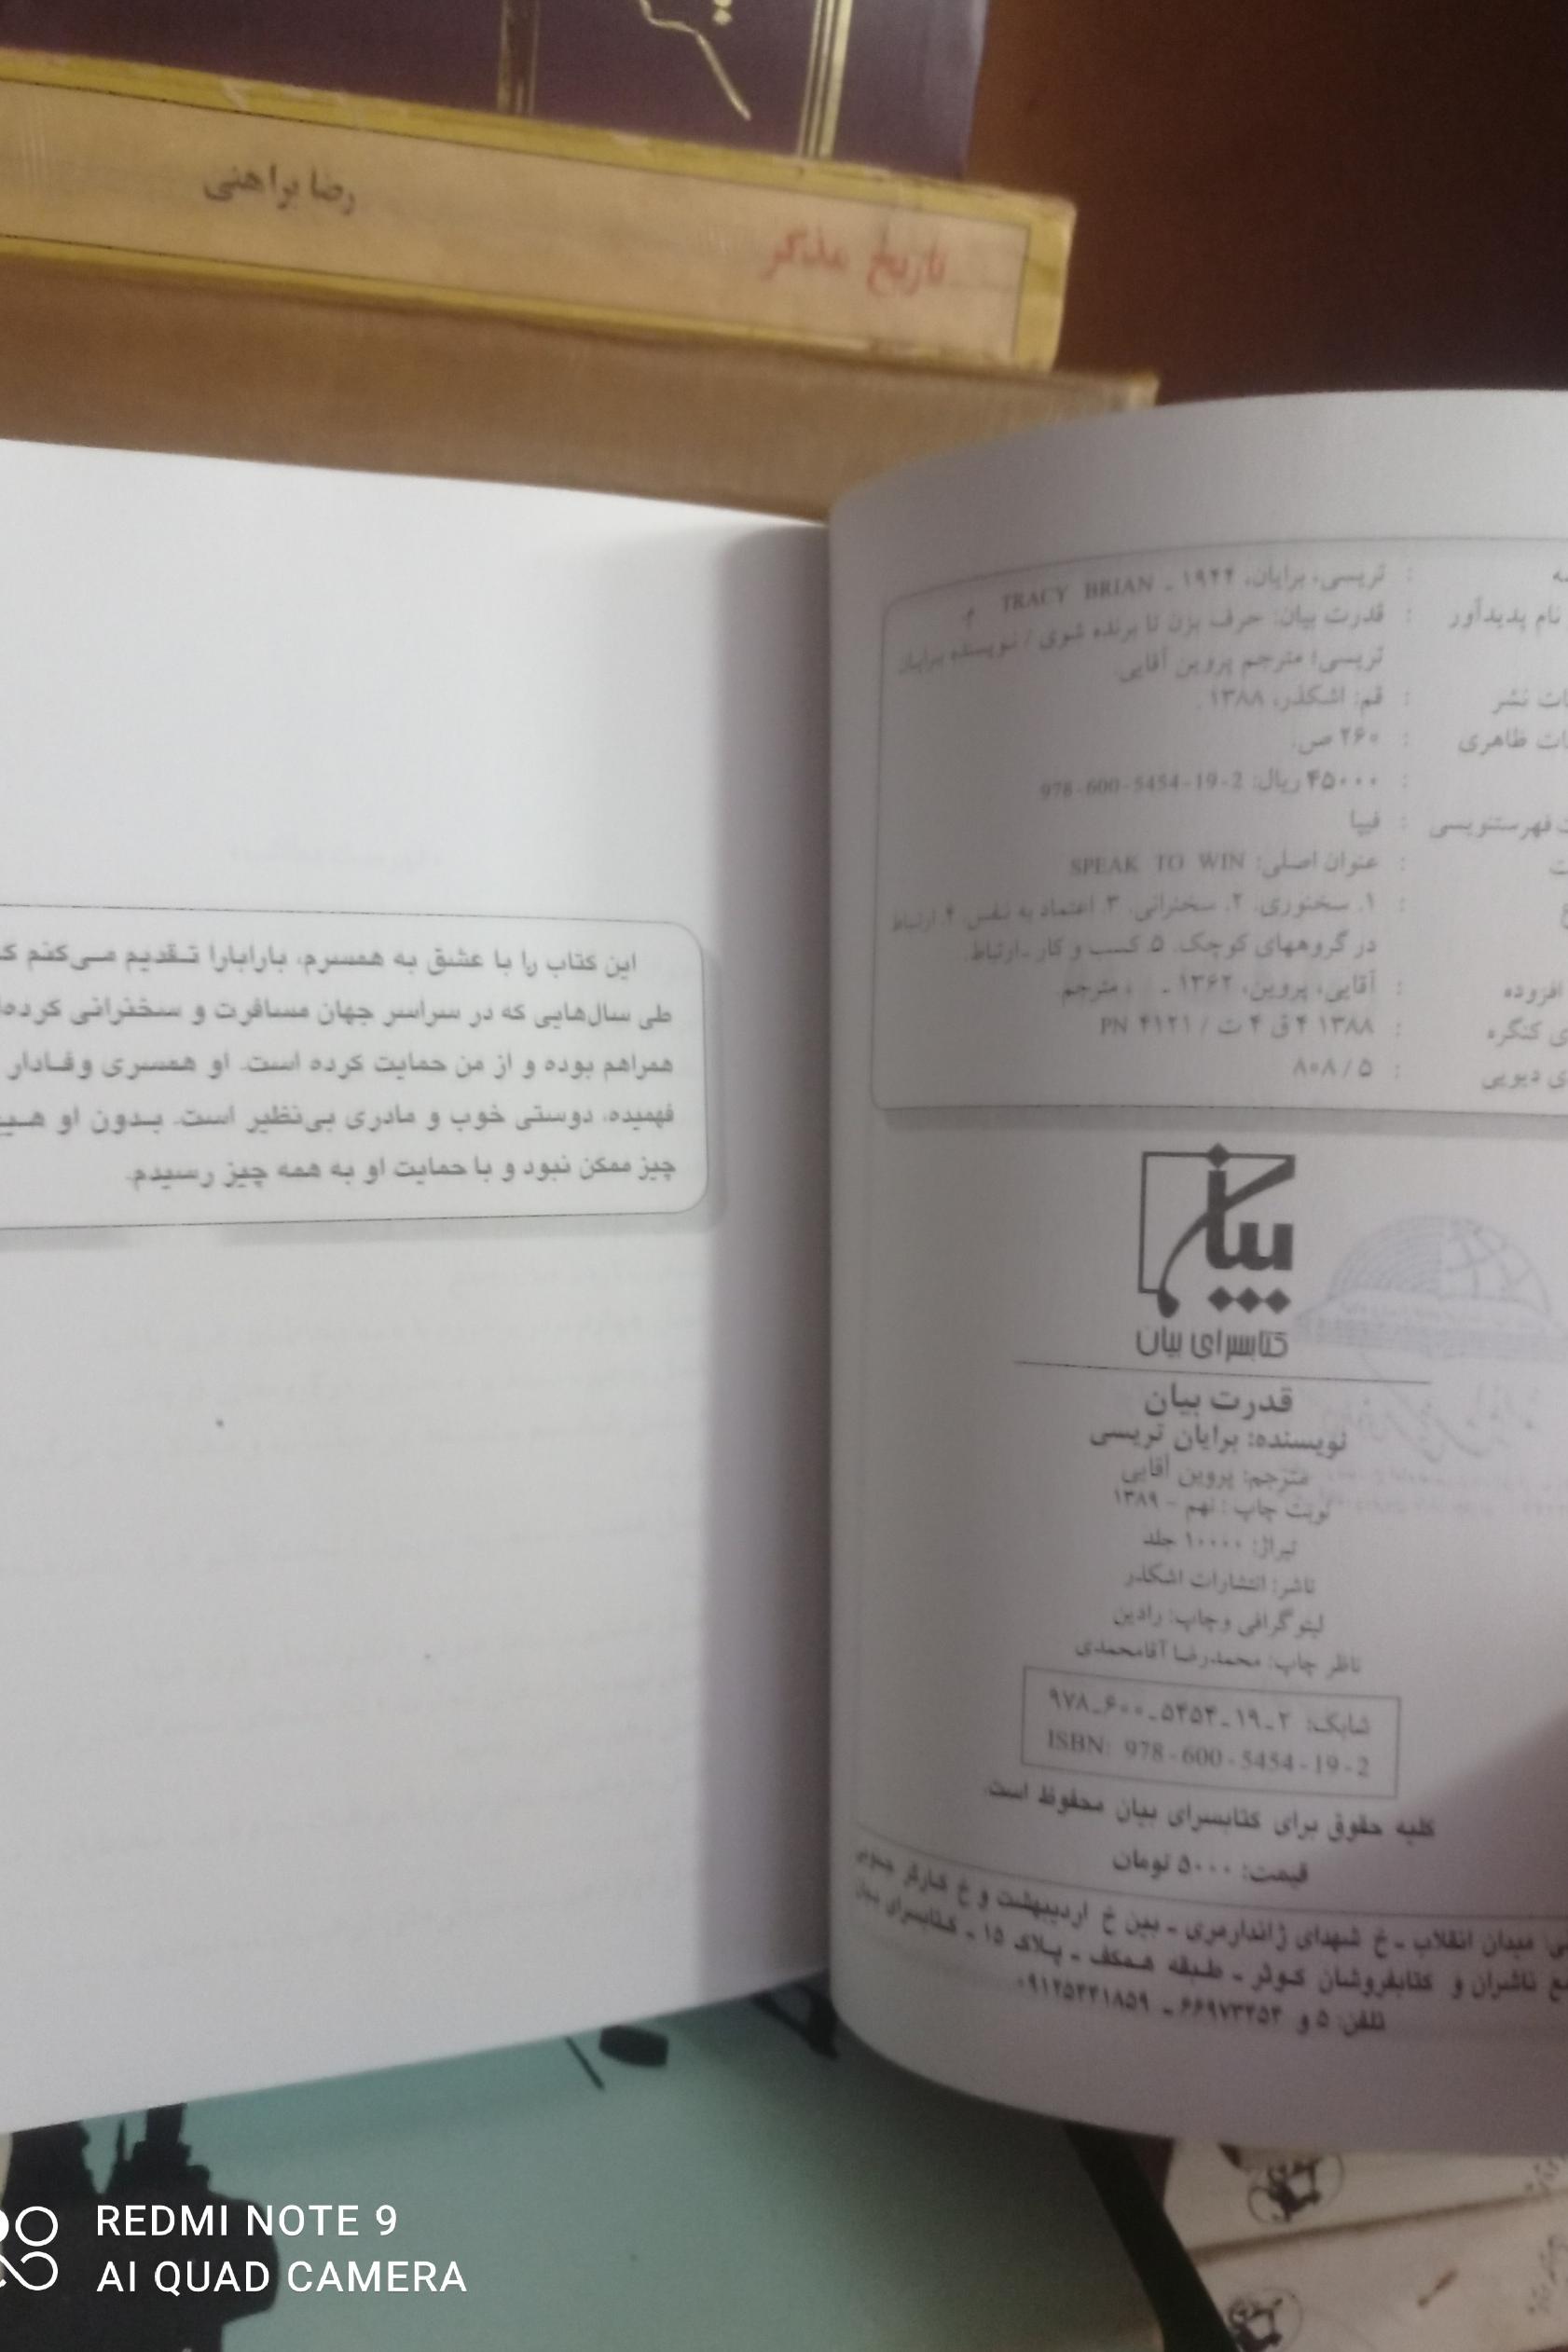 رضا براهنی
تاریخ مذکر
: تریسی، برایان، ۱۹۴۴ ـ TRACY BRIAN
نام پدیدآور : قدرت بیان: حرف بزن تا برنده شوی / نویسنده برایان
تریسی؛ مترجم پروین آقایی.
نشر : قم: اشکذر، ۱۳۸۸.
ظاهری : ۲۶۰ ص.
: ۴۵۰۰۰ ریال: 978-600-5454-19-2
فهرستنویسی : فیپا
: عنوان اصلی: SPEAK TO WIN
: ۱. سخنوری. ۲. سخنرانی. ۳. اعتماد به نفس. ۴. ارتباط
در گروههای کوچک. ۵. کسب و کار ـ ارتباط.
افزوده : آقایی، پروین، ۱۳۶۲ ـ ، مترجم.
کنگره : ۱۳۸۸ ۴ ق ۴ ت / PN ۴۱۲۱
دیویی : ۸۰۸/۵
بیان
کتابسرای بیان
قدرت بیان
نویسنده: برایان تریسی
مترجم: پروین آقایی
نوبت چاپ : نهم - ۱۳۸۹
تیراژ: ۱۰۰۰۰ جلد
ناشر: انتشارات اشکذر
لیتوگرافی وچاپ: رادین
ناظر چاپ: محمدرضا آقامحمدی
شابک: ۲ـ۱۹ـ۵۴۵۴ـ۶۰۰ـ۹۷۸
ISBN: 978-600-5454-19-2
کلیه حقوق برای کتابسرای بیان محفوظ است.
قیمت: ۵۰۰۰ تومان
میدان انقلاب ـ خ شهدای ژاندارمری ـ بین خ اردیبهشت و خ کارگر جنوبی
ناشران و کتابفروشان کوثر ـ طبقه همکف ـ پلاک ۱۵ ـ کتابسرای بیان
تلفن: ۵ و ۶۶۹۷۳۴۵۴ ـ ۰۹۱۲۵۴۴۱۸۵۹
این کتاب را با عشق به همسرم، بارابارا تـقدیم مـی‌کنم
طی سال‌هایی که در سراسر جهان مسافرت و سخنرانی
همراهم بوده و از من حمایت کرده است. او همسری وفـادار
فهمیده، دوستی خوب و مادری بی‌نظیر است. بـدون او
چیز ممکن نبود و با حمایت او به همه چیز رسیدم.
REDMI NOTE 9
AI QUAD CAMERA